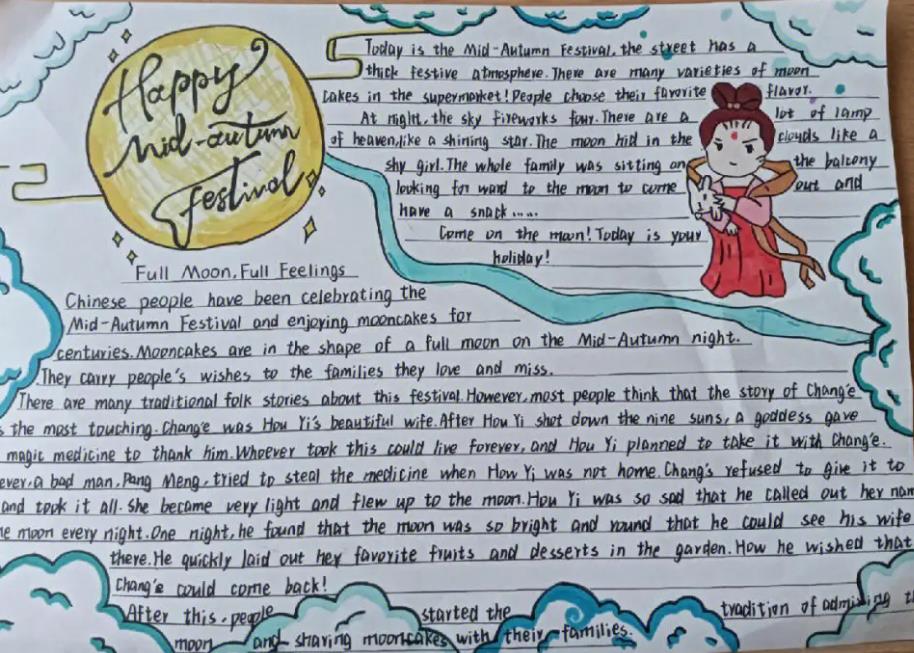 Happy
Mid-autumn
Festival
Today is the Mid-Autumn Festival, the street has a
thick festive atmosphere. There are many varieties of moon
cakes in the supermarket! People choose their favorite flavor.
At night, the sky fireworks four. There are a lot of lamp
of heaven, like a shining star. The moon hid in the clouds like a
shy girl. The whole family was sitting on the balcony
looking for ward to the moon to come out and
have a snack.....
Come on the moon! Today is your
holiday!
Full Moon, Full Feelings
Chinese people have been celebrating the
Mid-Autumn Festival and enjoying mooncakes for
centuries. Mooncakes are in the shape of a full moon on the Mid-Autumn night.
They carry people's wishes to the families they love and miss.
There are many traditional folk stories about this festival. However, most people think that the story of Chang'e
s the most touching. Chang'e was Hou Yi's beautiful wife. After Hou Yi shot down the nine suns, a goddess gave
magic medicine to thank him. Whoever took this could live forever, and Hou Yi planned to take it with Chang'e.
ever, a bad man, Pang Meng, tried to steal the medicine when How Yi was not home. Chang's refused to give it to
and took it all. She became very light and flew up to the moon. Hou Yi was so sad that he called out her nam
e moon every night. One night, he found that the moon was so bright and round that he could see his wife
there. He quickly laid out her favorite fruits and desserts in the garden. How he wished that
Chang'e could come back!
After this, people started the tradition of admiring t
moon and sharing mooncakes with their families.